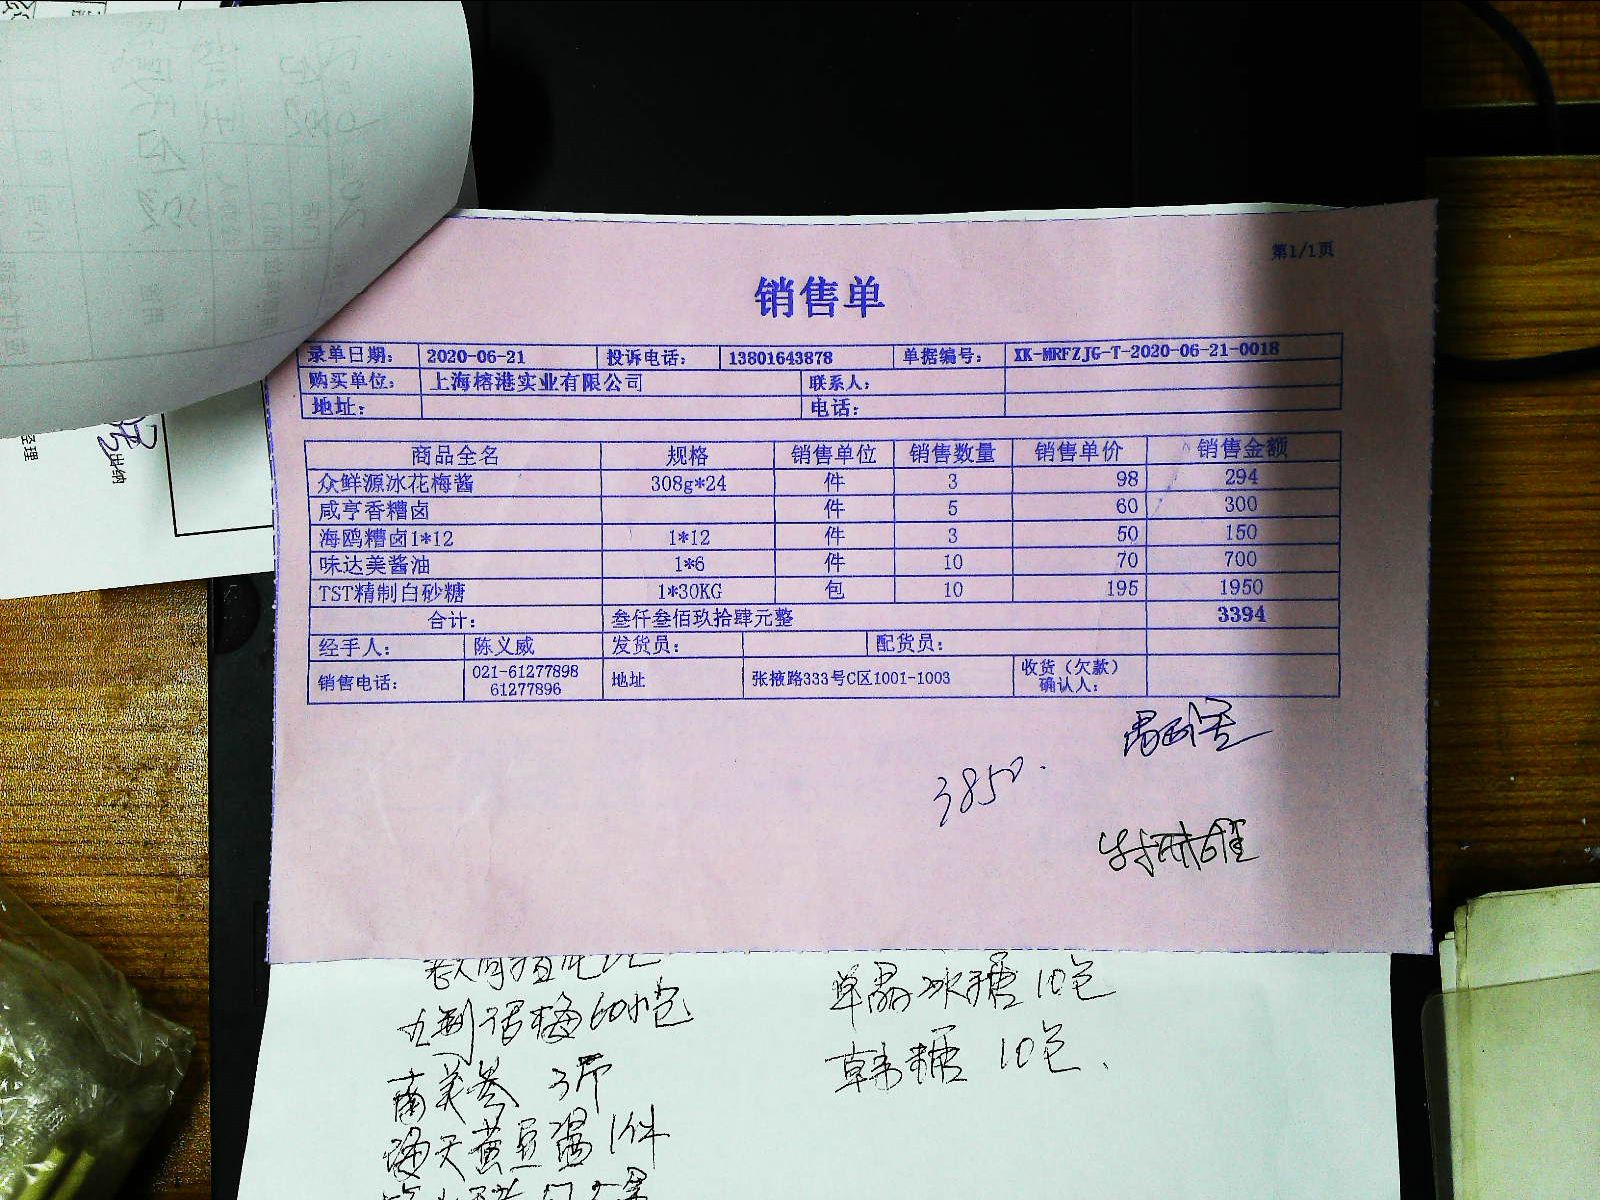 第1/1页
销售单
录单日期: 2020-06-21 投诉电话: 13801643878 单据编号: XK-MRFZJG-T-2020-06-21-0018
购买单位: 上海榕港实业有限公司 联系人:
地址: 电话:
商品全名 规格 销售单位 销售数量 销售单价 销售金额
众鲜源冰花梅酱 308g*24 件 3 98 294
咸亨香糟卤 件 5 60 300
海鸥糟卤1*12 1*12 件 3 50 150
味达美酱油 1*6 件 10 70 700
TST精制白砂糖 1*30KG 包 10 195 1950
合计: 叁仟叁佰玖拾肆元整 3394
经手人: 陈义威 发货员: 配货员:
销售电话: 021-61277898 61277896 地址 张掖路333号C区1001-1003 收货（欠款）确认人:
3850.
九制话梅60小包
单晶冰糖 10包
南美参 3斤
韩糖 10包、
海天黄豆酱1件
经理
出纳